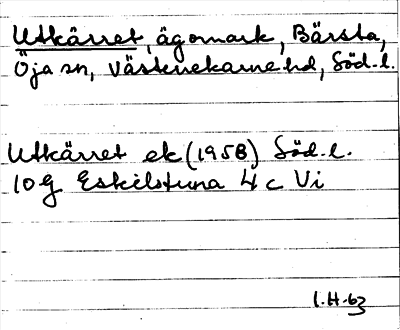 Utkärret, ägomark, Bärsta,
Öja sn, Västerrekarne hd, Söd. l.
Utkärret ek (1958) Söd. l.
10 G Eskilstuna 4 c Vi
I. H-63